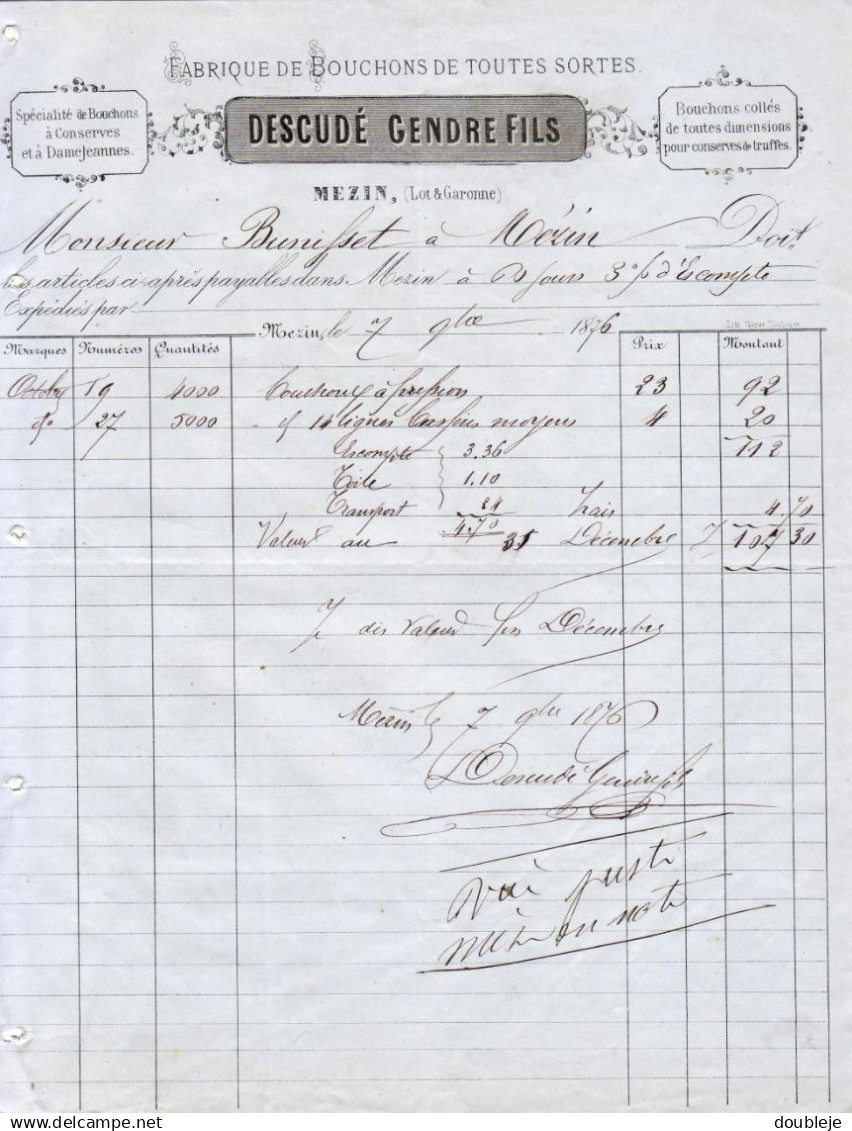 FABRIQUE DE BOUCHONS DE TOUTES SORTES.
Spécialité de Bouchons
à Conserves
et à DameJeannes.
DESCUDÉ GENDRE FILS
Bouchons collés
de toutes dimensions
pour conserves de truffes.
MEZIN, (Lot & Garonne)
Monsieur Bunisset à Mézin Doit
les articles ci-après payables dans Mezin à jours 3% d'Escompte
Expédiés par
Mezin, le 7 9bre 1876
Marques Numéros Quantités Prix Montant
19 4000 Bouchons à pression 23 92
do 27 5000 d 14 lignes moyens 4 20
Escompte 3.36 112
Toile 1.10
Transport 24 frais 4.70
4.70
Valeur au 31 Décembre F 107 30
Valeur fin Décembre
Mézin le 7 9bre 1876
Descudé Gendre fils
juste
doubleje